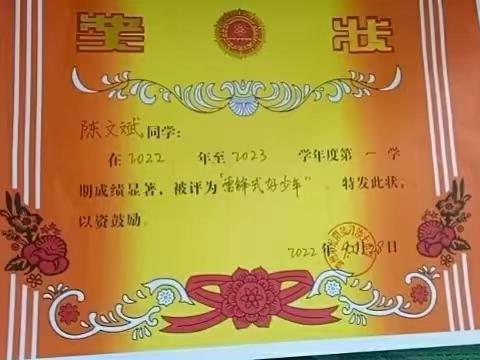 奖状
陈文斌同学：
在2022年至2023学年度第一学
期成绩显著，被评为"雷锋式好少年"。特发此状，
以资鼓励。
2022年 月28日